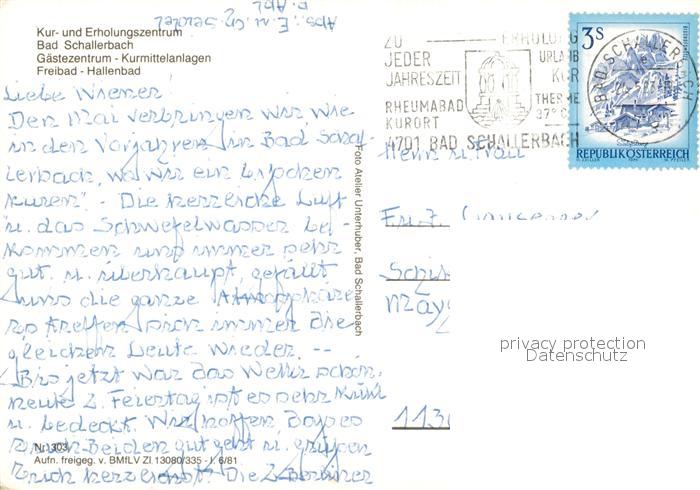 Abs.: E. u. Ch. Seidel
Kur- und Erholungszentrum
Bad Schallerbach
Gästezentrum - Kurmittelanlagen
Freibad - Hallenbad
Liebe Wiener!
Den Mai verbringen wir, wie
in den Vorjahren, in Bad Schal-
lerbach, wo wir ein bißchen
"kuren". - Die herrliche Luft
u. das Schwefelwasser be-
kommen uns immer sehr
gut. u. überhaupt, gefällt
uns die ganze Atmosphäre
so treffen sich immer die
gleichen Leute wieder. --
Bis jetzt war das Wetter schön,
heute 2. Feiertag ist es sehr kühl
u. bedeckt. Wir hoffen, daß es
Euch Beiden gut geht u. grüßen
Euch herzlichst! Die
Nr. 303
Aufn. freigeg. v. BMfLV Zl 13080/335 - I. 6/81
Foto Atelier Unterhuber, Bad Schallerbach
ZU ERHOLUNG
JEDER URLAUB
JAHRESZEIT KUR
RHEUMABAD THERME
KURORT 37° C
4701 BAD SCHALLERBACH
BAD SCHALLERBACH
3 S
REPUBLIK ÖSTERREICH
Herrn u. Frau
1130
privacy protection
Datenschutz